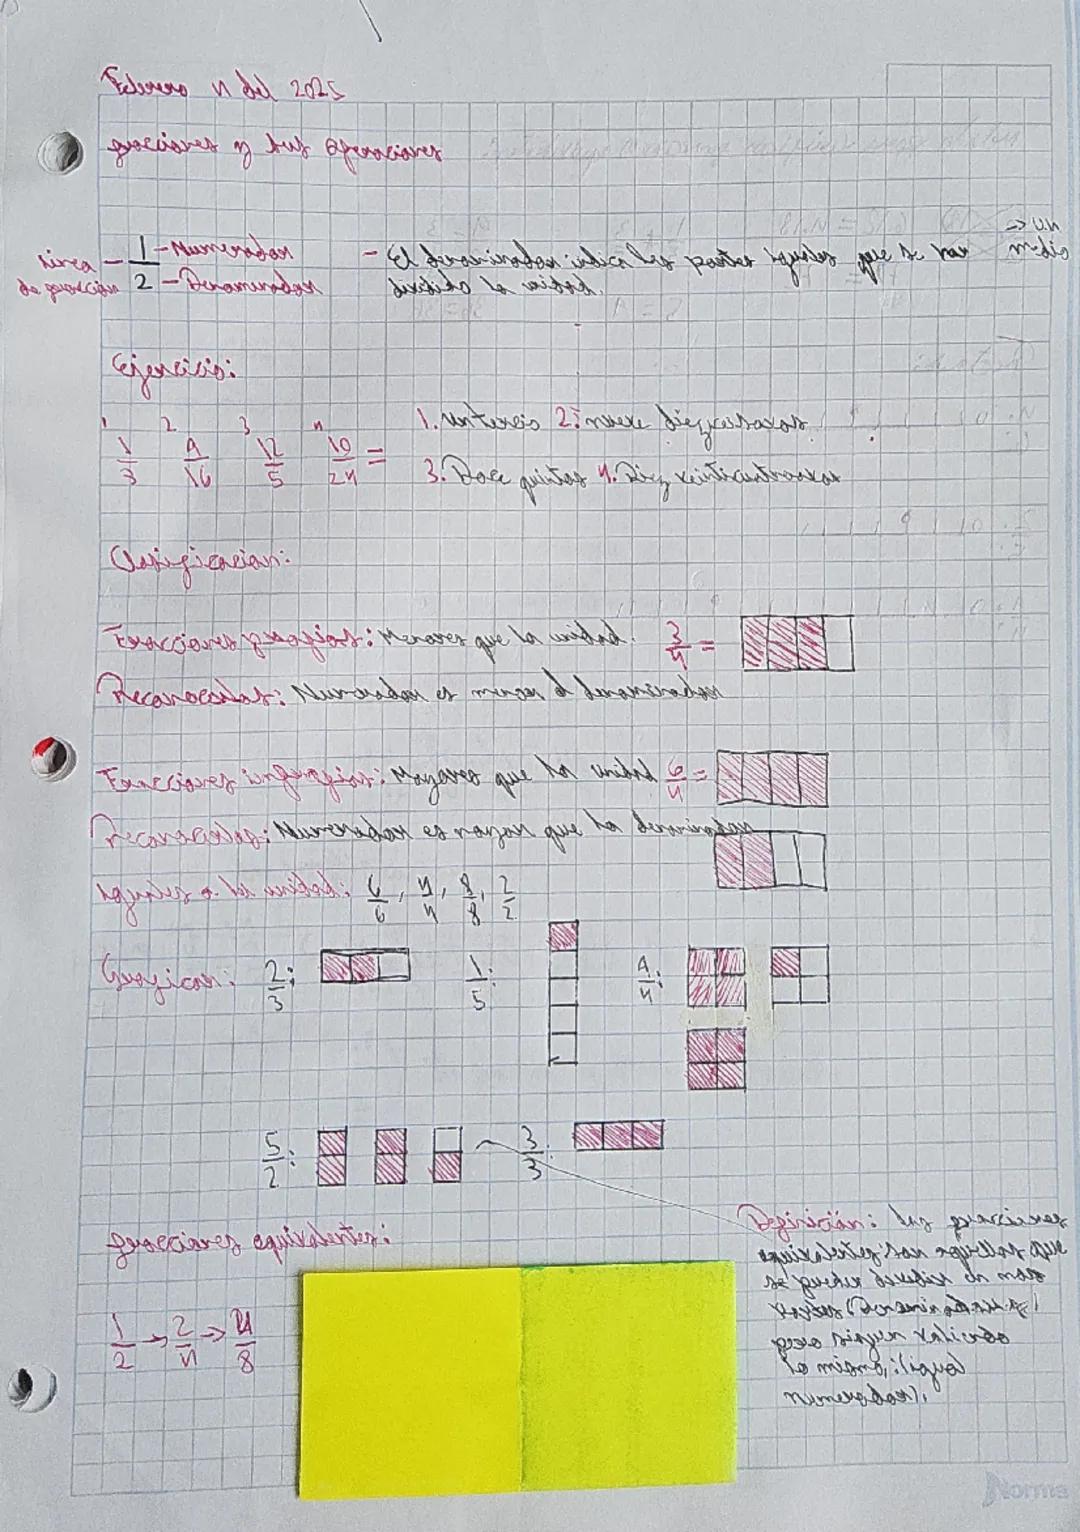 Febrero 4 del 2025
fracciones y sus operaciones
linea de fracción - 1/2 - Numerador
- Denominador
- El denominador: indica las partes iguales que se han
dividido la unidad.
=> Un
medio
Ejercicio:
1 2 3 4
1/3 9/16 12/5 10/24 =
1. un tercio 2. nueve dieziseisavos
3. Doce quintos 4. Diez veinticuatroavos
Clasificacion:
Fracciones propias: Menores que la unidad. 3/4 =
Reconocerlas: Numerador es menor al denominador
Fracciones impropias: Mayores que la unidad 6/4 =
Reconocerlas: Numerador es mayor que la denominador
Iguales a la unidad: 6/6, 4/4, 8/8, 2/2
Graficar: 2/3: 1/5: 9/4:
5/2: 3/3:
fracciones equivalentes:
1/2 → 2/4 → 4/8
Definición: las fracciones
equivalentes son aquellas que
se pueden dividir en mas
pero siguen valiendo
lo mismo, (igual
numerador).
Norma